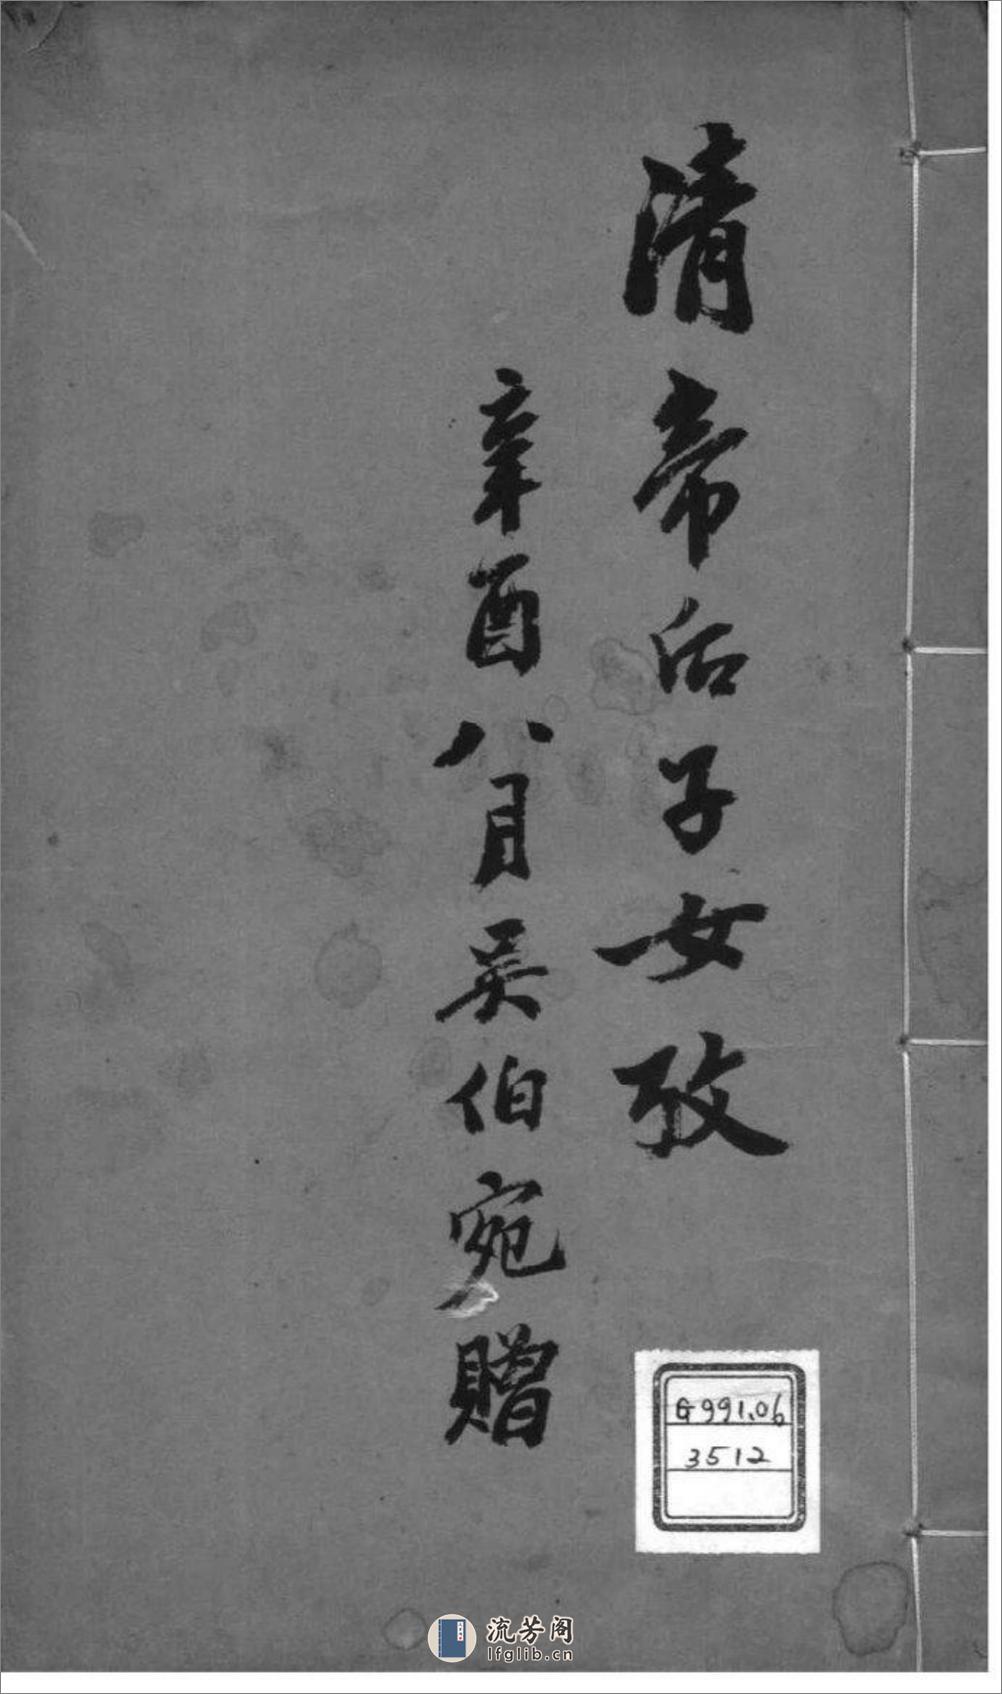 清帝后子女攷
辛酉八月吴伯宛贈
G991.06
3512
流芳阁
lfglib.cn